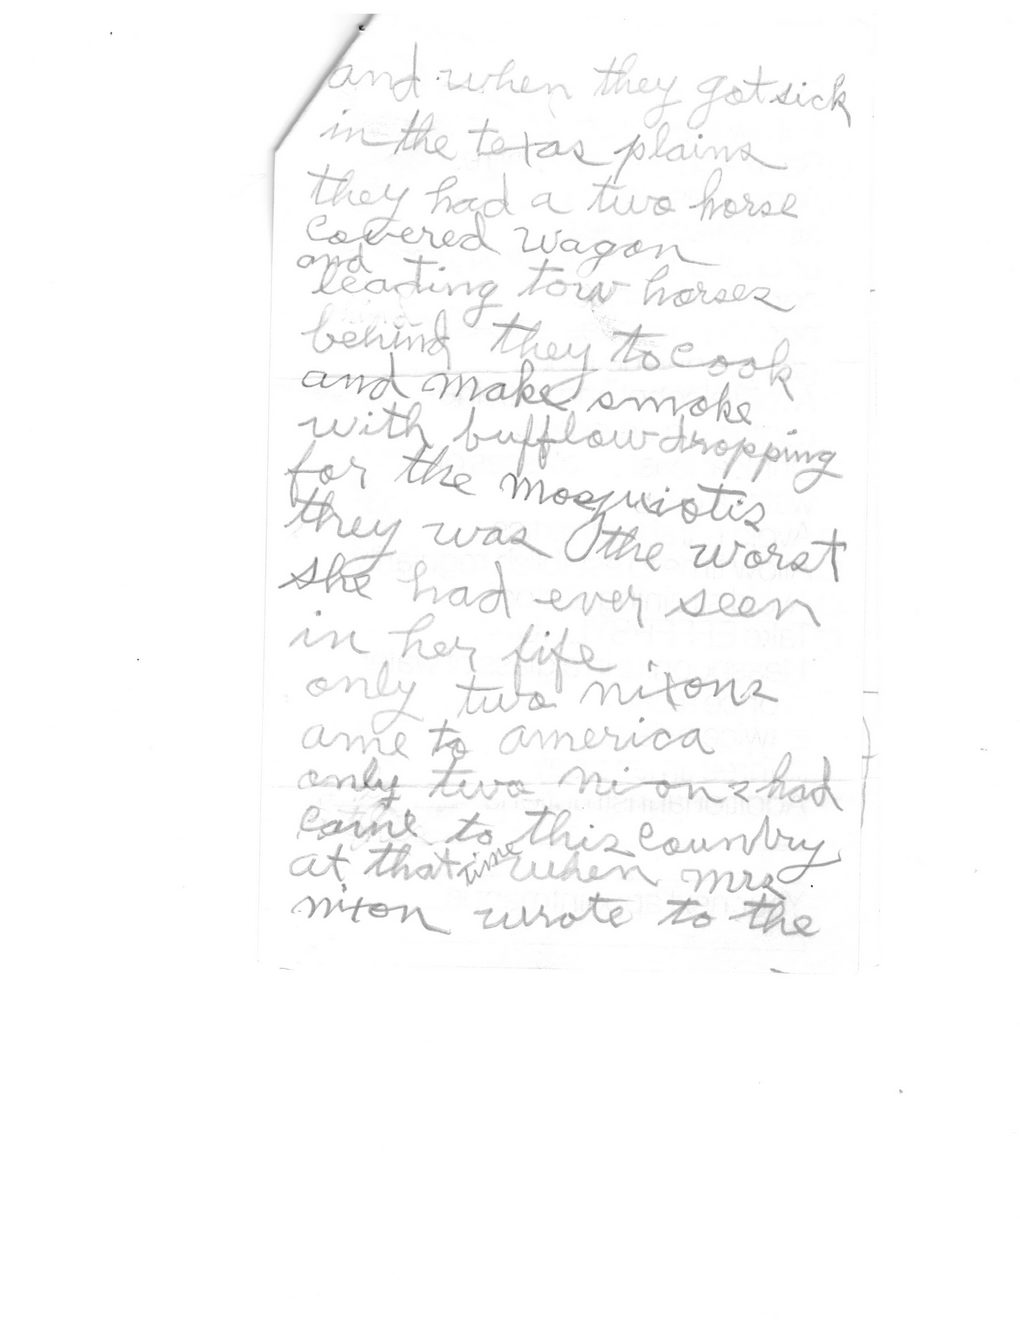 and when they got sick
in the texas plains
they had a two horse
covered wagon
and
leading tow horses
behind they to cook
and make smoke
with bufflow dropping
for the mosquiotis
they was the worst
she had ever seen
in her fife
only two nixons
ame to america
only two ni ons had
came to this country
at that time when mrs
nixon wrote to the